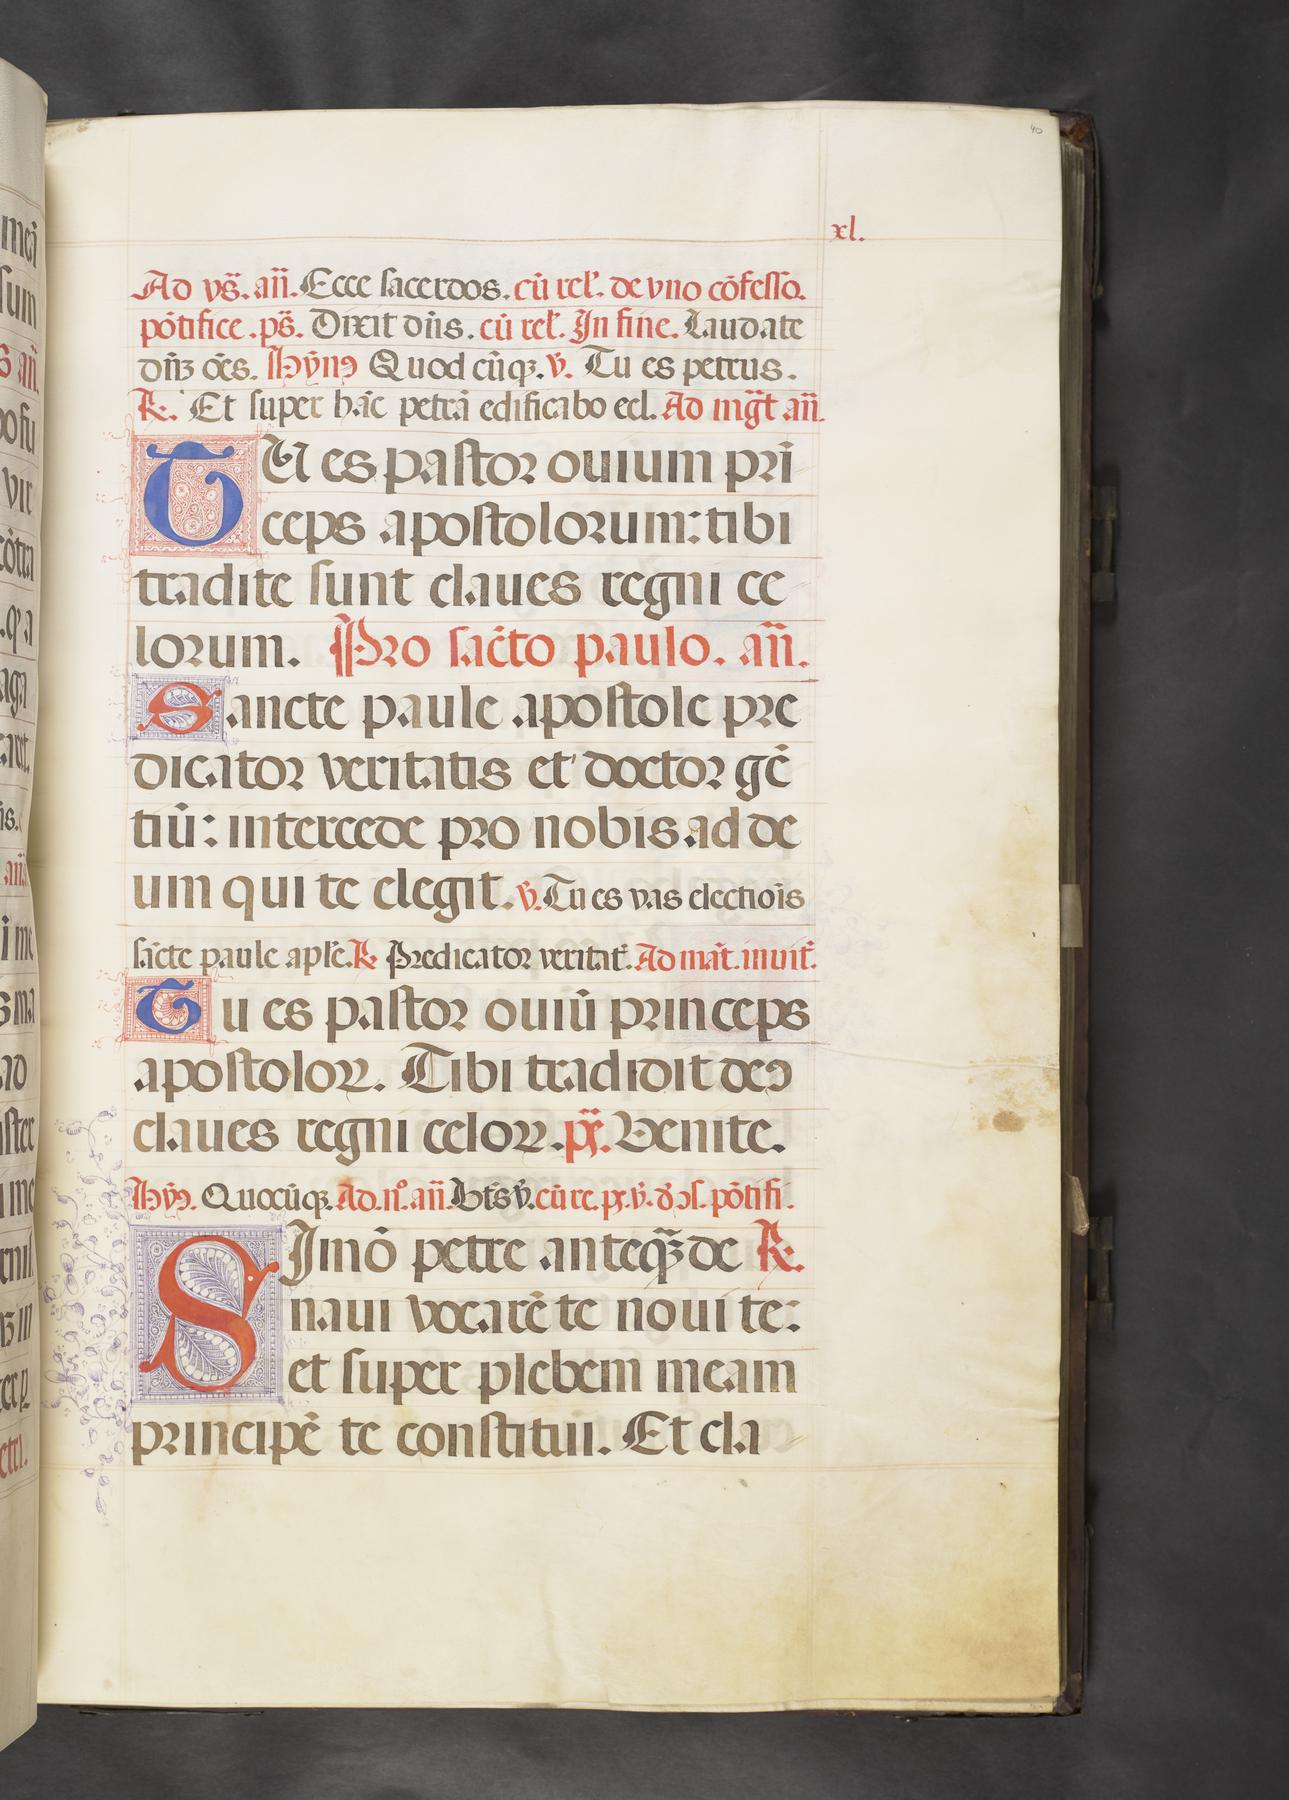 40
xl.
Ad vs̃. añ. Ecce sacerdos. cũ rel'. de vno cõfesso.
põtifice. ps̃. Dixit dñs. cũ rel'. In fine. Laudate
dñʒ oẽs. Hỹnꝰ Quod cũqꝫ. v̄. Tu es petrus.
R. Et super hãc petrã edificabo eccl. Ad mg̃t añ.
TU es pastor ouium pri
ceps apostolorum: tibi
tradite sunt claues regni ce
lorum. Pro sãcto paulo. añ.
Sancte paule apostole pre
dicator veritatis et doctor gẽ
tiũ: intercede pro nobis ad de
um qui te elegit. v̄. Tu es vas electiois̃
sãcte paule apl̃e. R. Predicator veritat̃. Ad mat̃. inuit̃.
Tu es pastor ouiũ princeps
apostoloꝝ. Tibi tradidit deꝰ
claues regni celoꝝ. p̃x. Venite.
Hỹn. Quocũqꝫ. Ad. nº. añ. Hr̃s v̄. cũ re. px. v̄. d̃ ꝯf. põtifi.
SImõ petre anteqꝫ̃ de R.
naui vocarẽ te noui te:
et super plebem meam
principẽ te constitui. Et cla